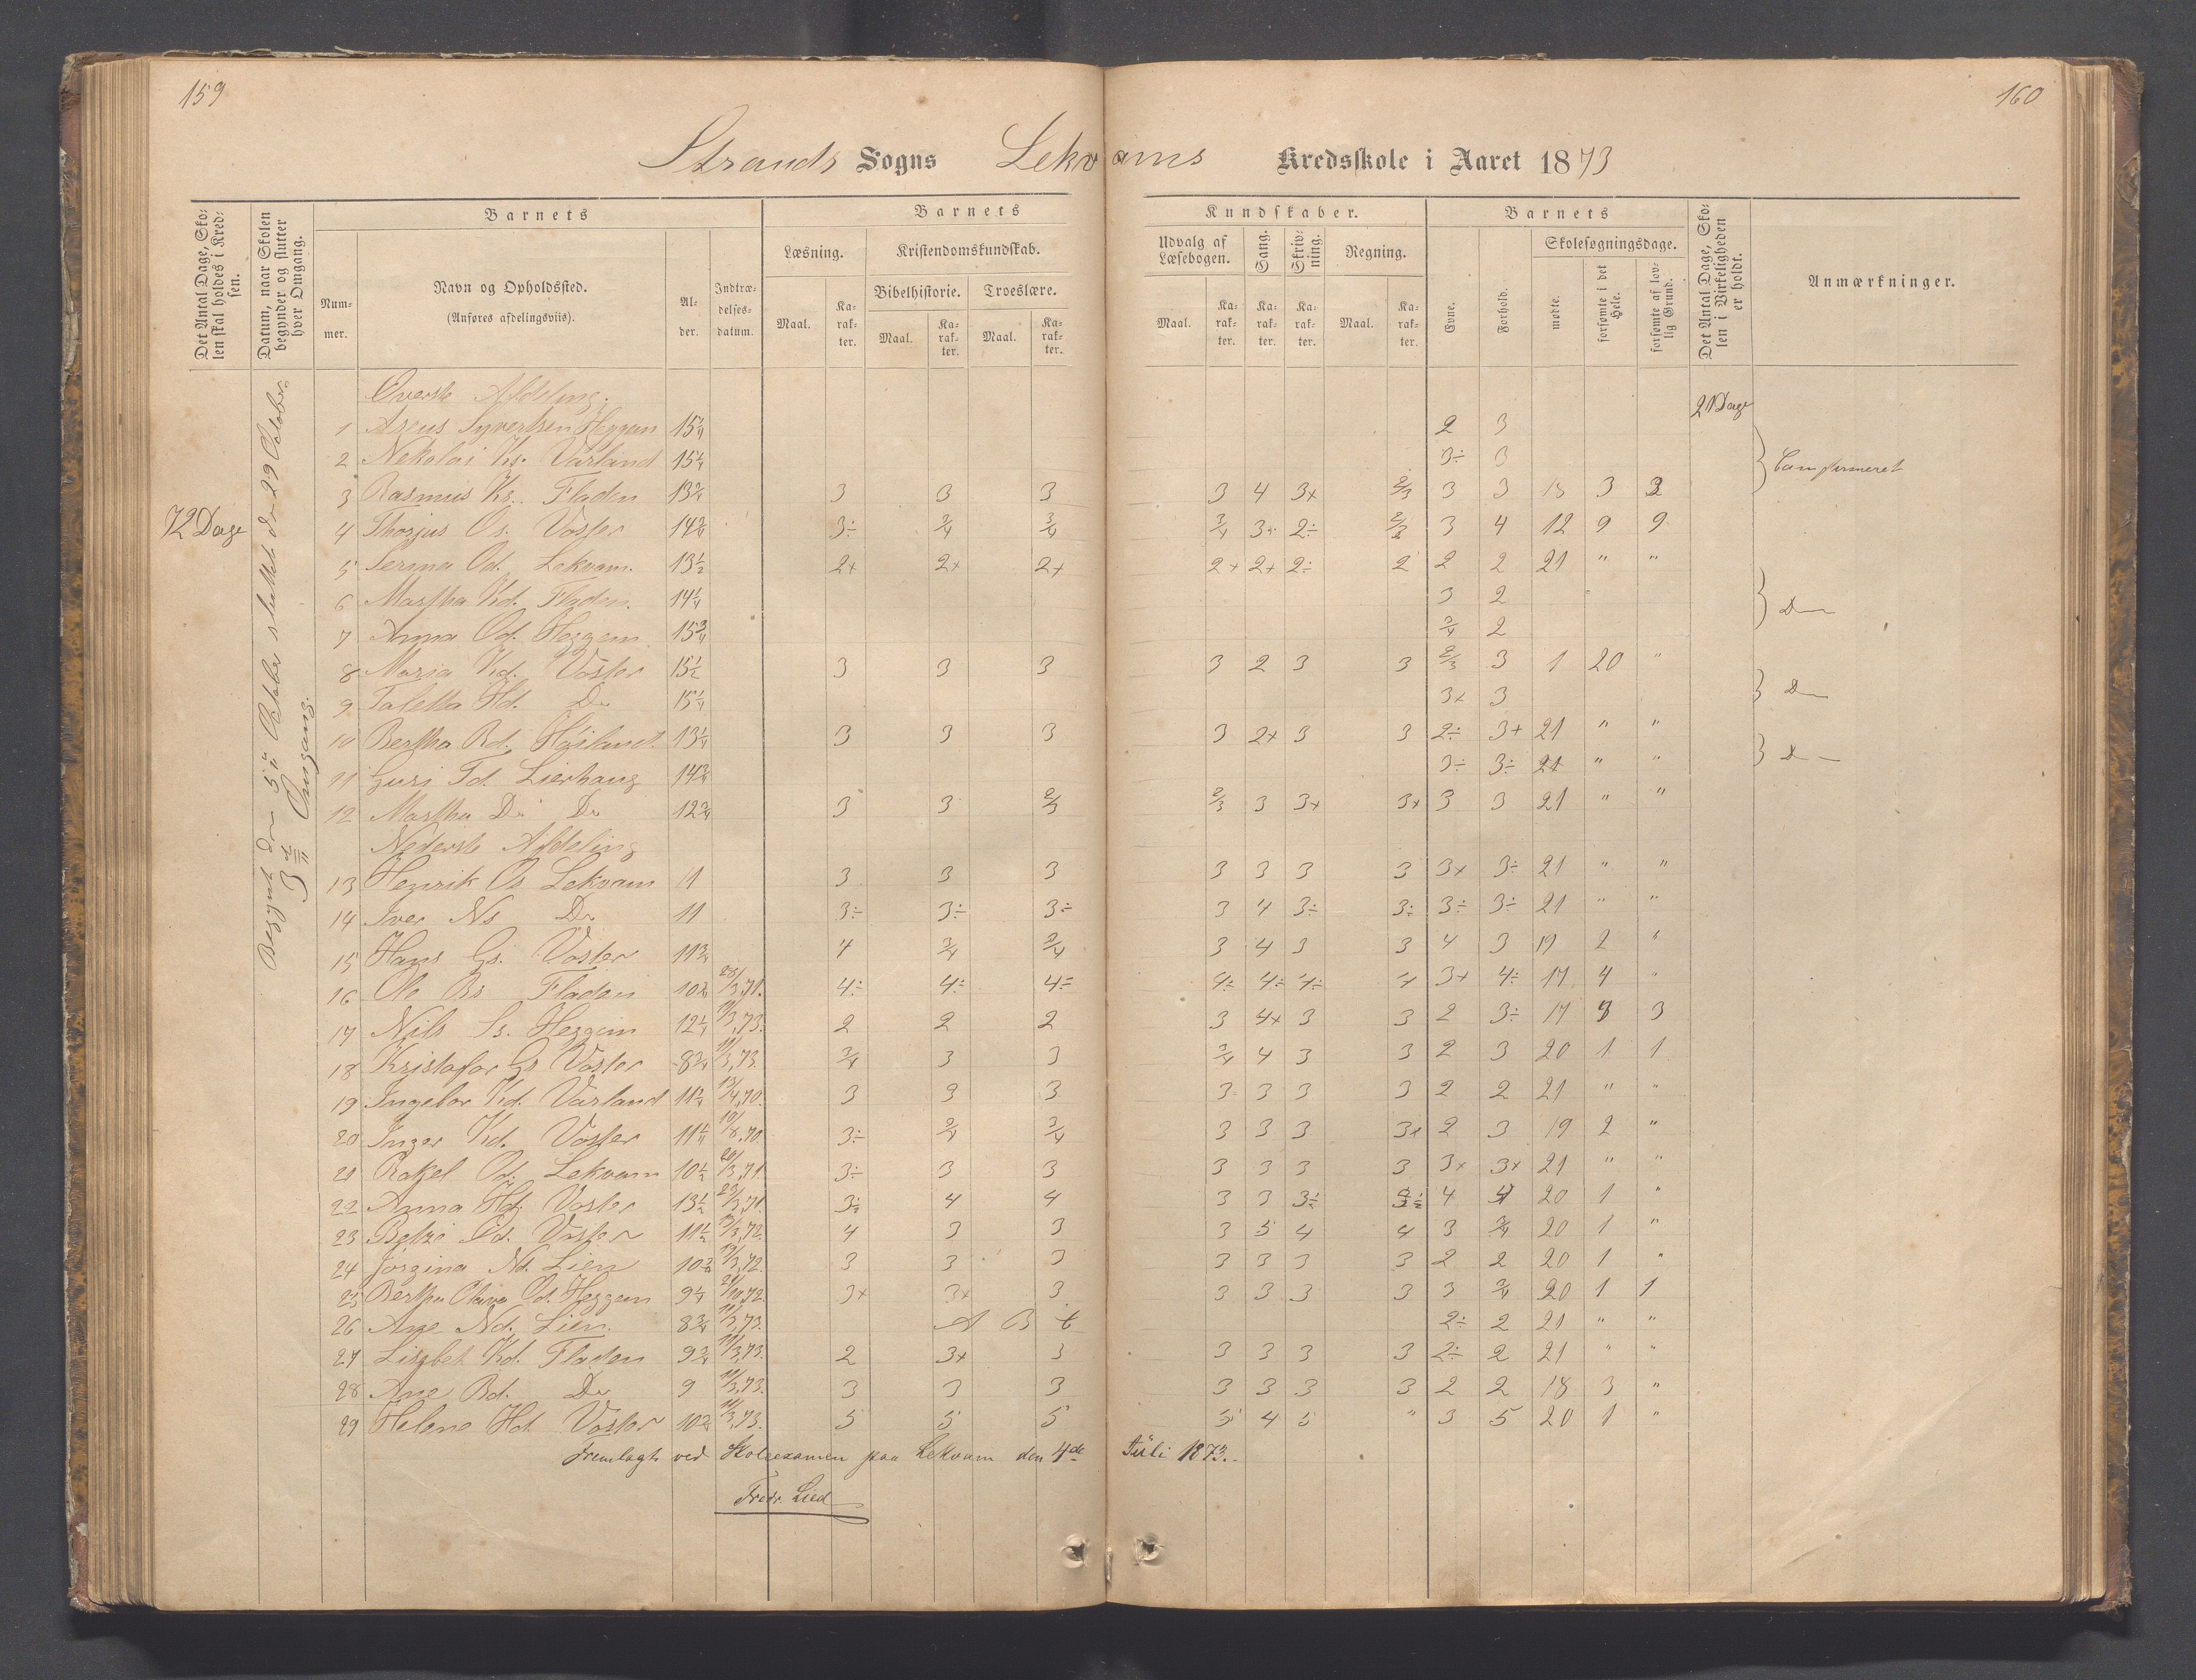 159
160
Strands Sogns Lekvams Kredsskole i Aaret 1873
Det Antal Dage, Skolen skal holdes i Kredsen.
Datum, naar Skolen begynder og slutter hver Omgang.
Barnets
Nummer.
Navn og Opholdssted.
(Anføres afdelingsviis).
Alder.
Indtrædelsesdatum.
Barnets Kundskaber.
Læsning.
Kristendomskundskab.
Bibelhistorie.
Troeslære.
Udvalg af Læsebogen.
Sang.
Skrivning.
Regning.
Maal.
Karakter.
Barnets
Evne.
Forhold.
Skolesøgningsdage.
mødte.
forsømte i det Hele.
forsømte af lovlig Grund.
Det Antal Dage, Skolen i Virkeligheden er holdt.
Anmærkninger.
72 Dage
Begynt den 5te October sluttet den 29 October
3die Omgang
Øverste Afdeling.
21 Dage
1 Syvertsen Heggem 15 1/4 2 3
2 Nekolai Ks. Varland 15 1/4 3÷ 3 Confirmeret
3 Rasmus Ks. Fladen 13 3/4 3 3 3 3 4 3+ 2/3 3 3 18 3 3
4 Os. Voster 14 3/4 3÷ 3/4 3/4 3/4 3÷ 2÷ 2/3 3 4 12 9 9
5 Serina Od. Lekvam. 13 1/2 2+ 2+ 2+ 2+ 2+ 2÷ 2 2 2 21 " "
6 Martha Kd. Fladen. 14 1/4 3 2
7 Anna Od. Heggem 15 3/4 3/4 2
8 Maria Kd. Voster 15 1/2 3 3 3 3 2 3 3 2/3 3 1 20 "
9 Taletta Hd. Do 15 1/4 3+ 3
10 Bertha Bd. Høiland. 13 1/4 3 3 3 3 2+ 3 3 2÷ 3+ 21 " "
11 Guri Td. Lierhaug 14 3/4 3÷ 3÷ 21 " "
12 Martha Do Do 12 3/4 3 3 2/3 2/3 3 3+ 3+ 3 3 21 " "
Nederste Afdeling
13 Henrik Os Lekvam 11 3 3 3 3 3 3 3 3+ 3÷ 21 " "
14 Iver Ns Do 11 3÷ 3÷ 3÷ 3 4 3÷ 3÷ 3÷ 3÷ 21 " "
15 Hans Gs. Voster 11 3/4 4 3/4 3/4 3 4 3 3 4 3 19 2 "
16 Ole Bs Fladen 10 3/4 28/3,71. 4÷ 4÷ 4÷ 4÷ 4÷ 4÷ 4 3+ 4÷ 17 4 "
17 Nils Ss. Heggem 12 1/4 2 2 2 3 4+ 3 3 2 3÷ 17 3
18 Kristofar Gs Voster 8 3/4 11/3,73. 3/4 3 3 3/4 4 3 3 2 3 20 1 1
19 Ingebor Kd. Varland 3 3 3 3 3 3 3 2 2 21 " "
20 Inger Kd. Voster 3÷ 3/4 3/4 3 3 3 3+ 2 3 19 2 "
21 Rakel Od. Lekvam 10 1/2 3÷ 3 3 3 3 3 3 3+ 3+ 21 " "
22 Anna Hd. Voster 13 1/2 3÷ 4 4 3 3 3÷ 4 4 20 1 "
23 Od. Voster 11 1/2 4 3 3 3 5 4 4 3 3/4 20 1 "
24 Jørgina Nd. Lien 10 3/4 3 3 3 3 3 3 3 2 2 20 1 "
25 Bertha Oliva Od. Heggem 9 1/4 3+ 3+ 3 3 3 3 3 3 3/4 20 1 1
26 Ane Nd. Lien. 8 3/4 11/3,73. A B t 2÷ 2 21 " "
27 Lisabet Kd. Fladen 9 3/4 11/3,73. 2 3+ 3 3 3 3 3 2÷ 2 21 " "
28 Ane Bd. Do 9 11/3,73. 3 3 3 3 3 3 3 2 2 18 3 "
29 Helene Hd Voster 10 3/4 11/3,73. 5 5 5 5 4 5 " 3 5 20 1 "
Fremlagt ved Skoleexamen paa Lekvam den 4de Juli 1873.
Fredr. Lied